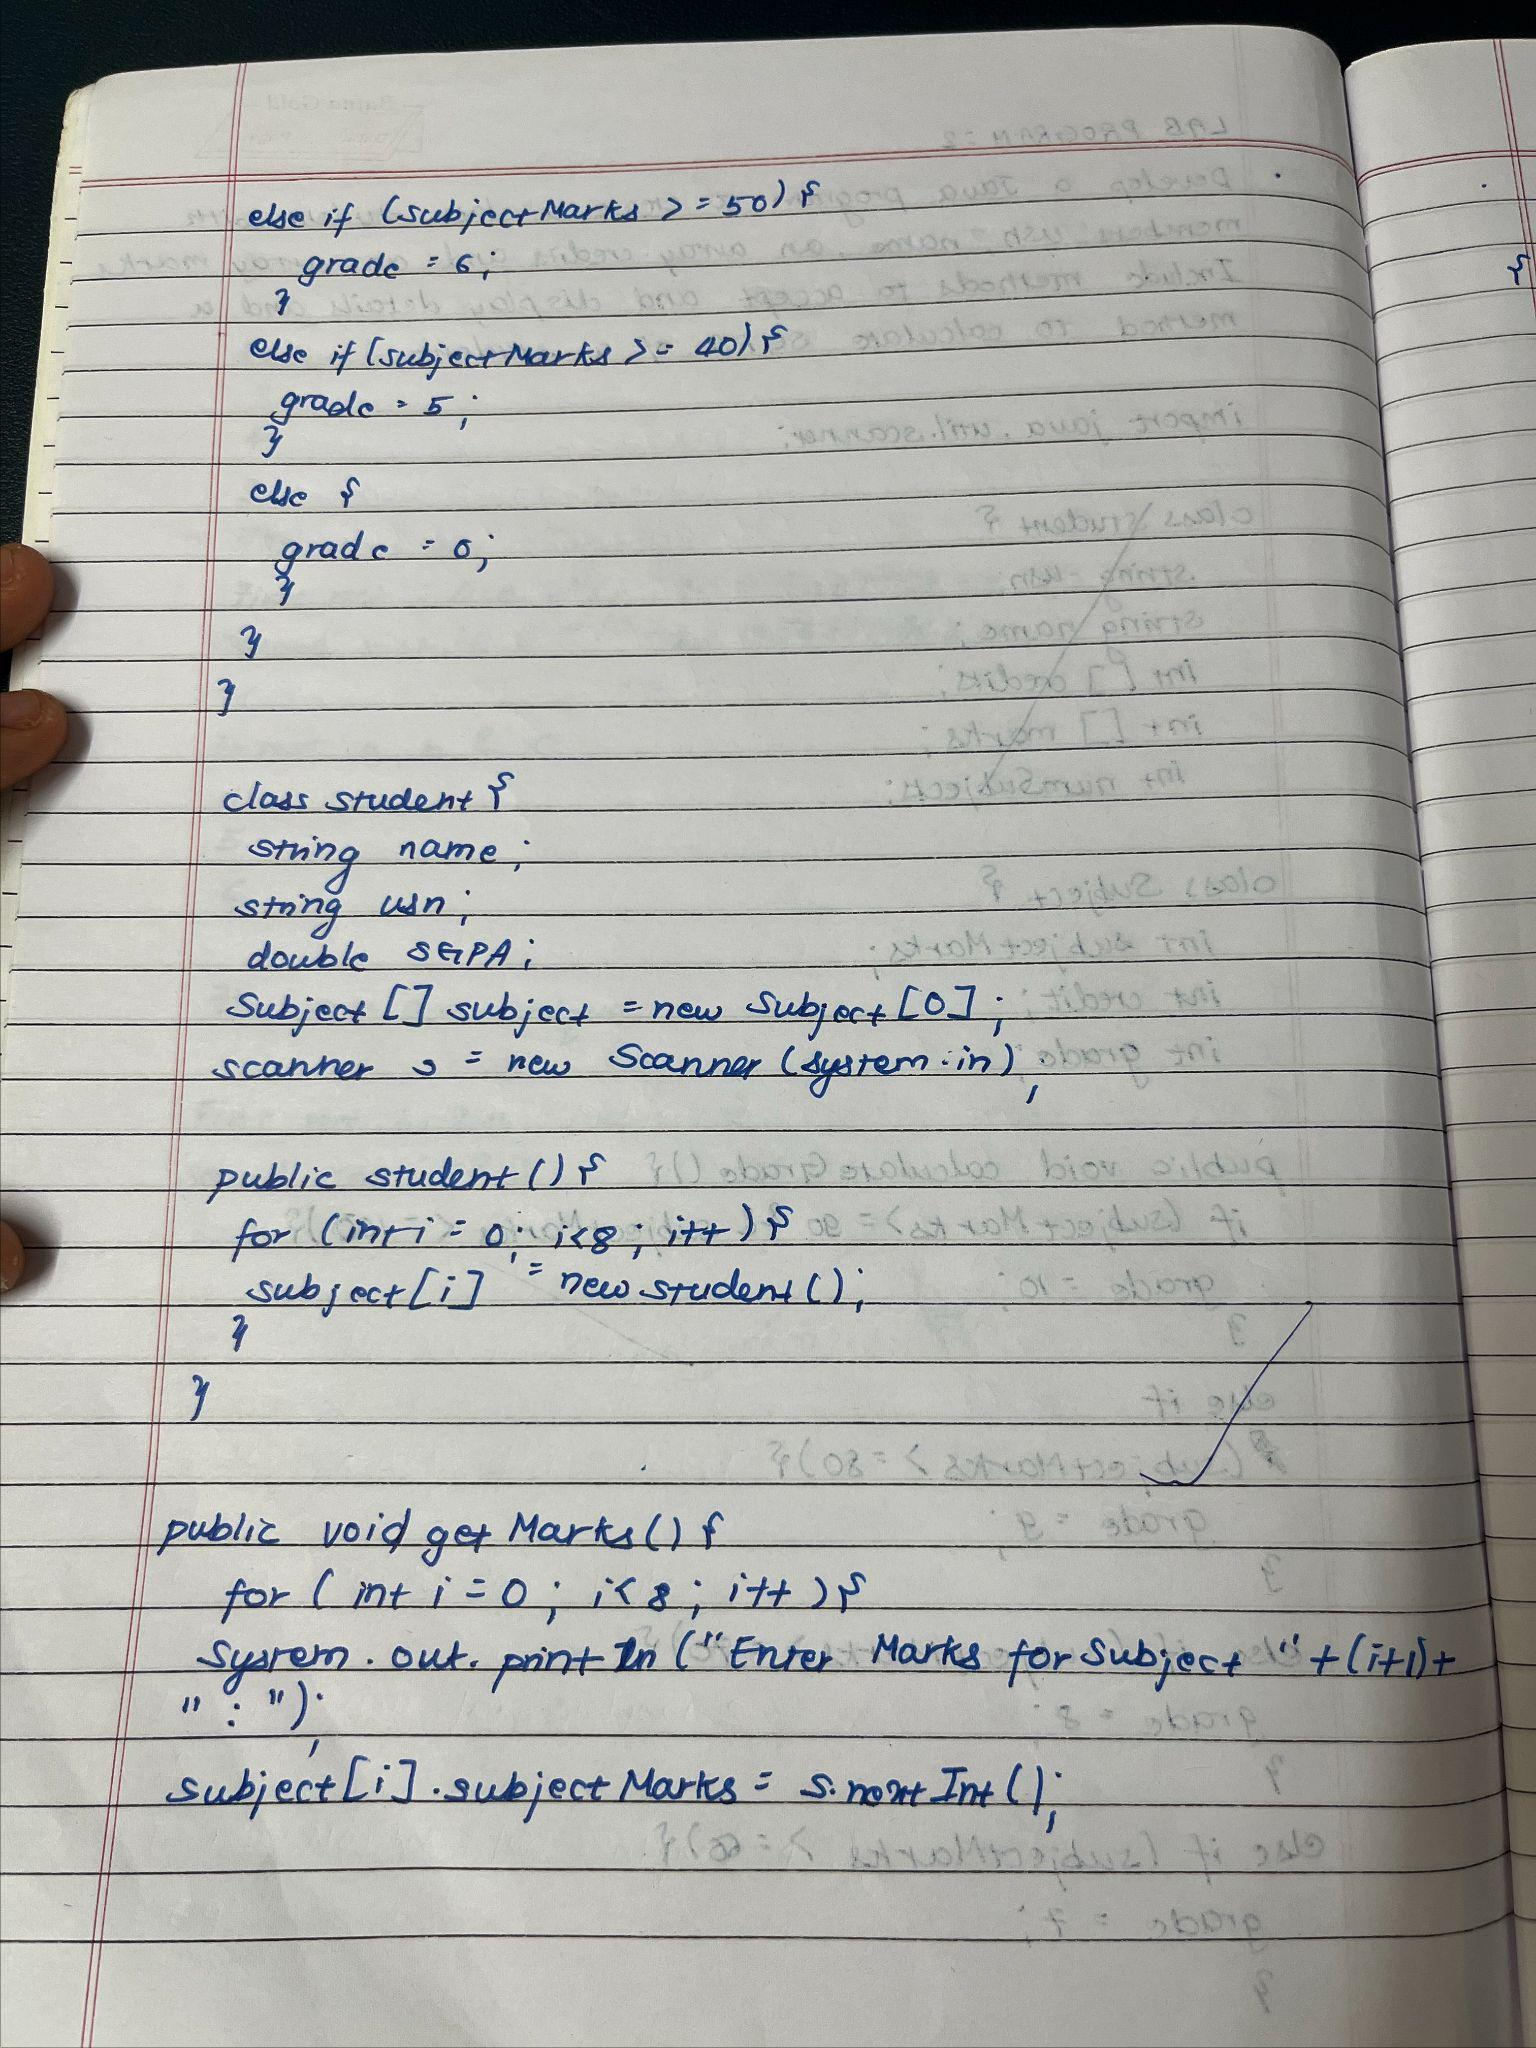 else if (subjectMarks >= 50) {
grade = 6;
}
else if (subjectMarks >= 40) {
grade = 5;
}
else {
grade = 0;
}
}
}
class student {
string name;
string usn;
double SGPA;
Subject [] subject = new Subject [0];
scanner s = new Scanner (system.in);
public student () {
for (int i = 0; i<8; i++) {
subject [i] = new student ();
}
}
public void get Marks () {
for ( int i = 0; i< 8; i++ ) {
System. out. print ln ("Enter Marks for Subject " + (i+1)+
" : ");
subject [i]. subject Marks = s.next Int ();
{